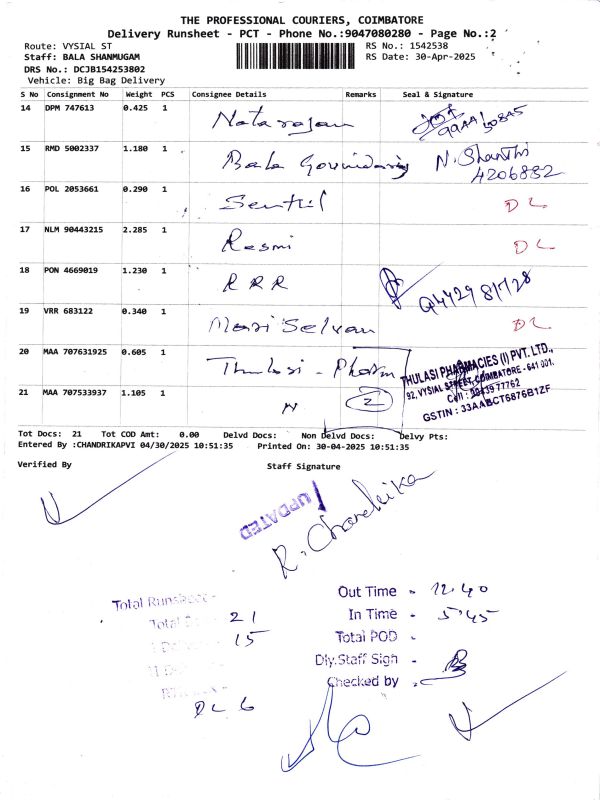 THE PROFESSIONAL COURIERS, COIMBATORE
Delivery Runsheet - PCT - Phone No.:9047080280 - Page No.:2
Route: VYSIAL ST
RS No.: 1542538
Staff: BALA SHANMUGAM
RS Date: 30-Apr-2025
DRS No.: DCJB154253802
Vehicle: Big Bag Delivery
S No Consignment No Weight PCS Consignee Details Remarks Seal & Signature
14 DPM 747613 0.425 1 Natarajan
15 RMD 5002337 1.180 1 Bala N. Shanthi
4206882
16 POL 2053661 0.290 1 Senthil DL
17 NLM 90443215 2.285 1 Resmi DL
18 PON 4669019 1.230 1 RRR
19 VRR 683122 0.340 1 Mari Selvan DL
20 MAA 707631925 0.605 1 Thulasi - Pharm
THULASI PHARMACIES (I) PVT. LTD.,
92, VYSIAL STREET, COIMBATORE - 641 001.
Cell : 77762
GSTIN : 33AABCT6876B1ZF
21 MAA 707533937 1.105 1 " 2
Tot Docs: 21 Tot COD Amt: 0.00 Delvd Docs: Non Delvd Docs: Delvy Pts:
Entered By :CHANDRIKAPVI 04/30/2025 10:51:35 Printed On: 30-04-2025 10:51:35
Verified By Staff Signature
UPDATED
R. Chandrika
Total Runsheet -
Total 21
15
DL 6
Out Time - 12.40
In Time - 5.45
Total POD -
Dly.Staff Sign -
Checked by -